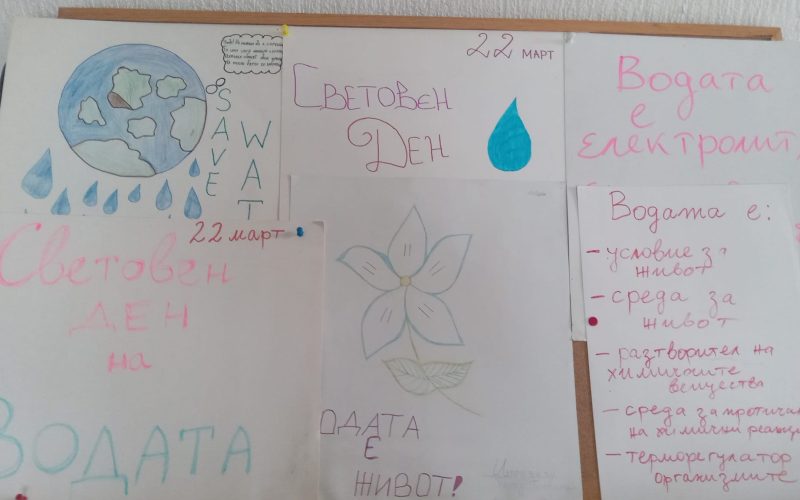 SAVE
WAT
22 МАРТ
СВЕТОВЕН
ДЕН
Водата
е
електролит
22 март
Световен
ДЕН
на
ВОДАТА
ОДАТА
Е
ЖИВОТ!
Водата е:
– условие за
живот
– среда за
живот
– разтворител на
химичните
вещества
– среда за протичан
на химични реакци
– терморегулатор
организмите